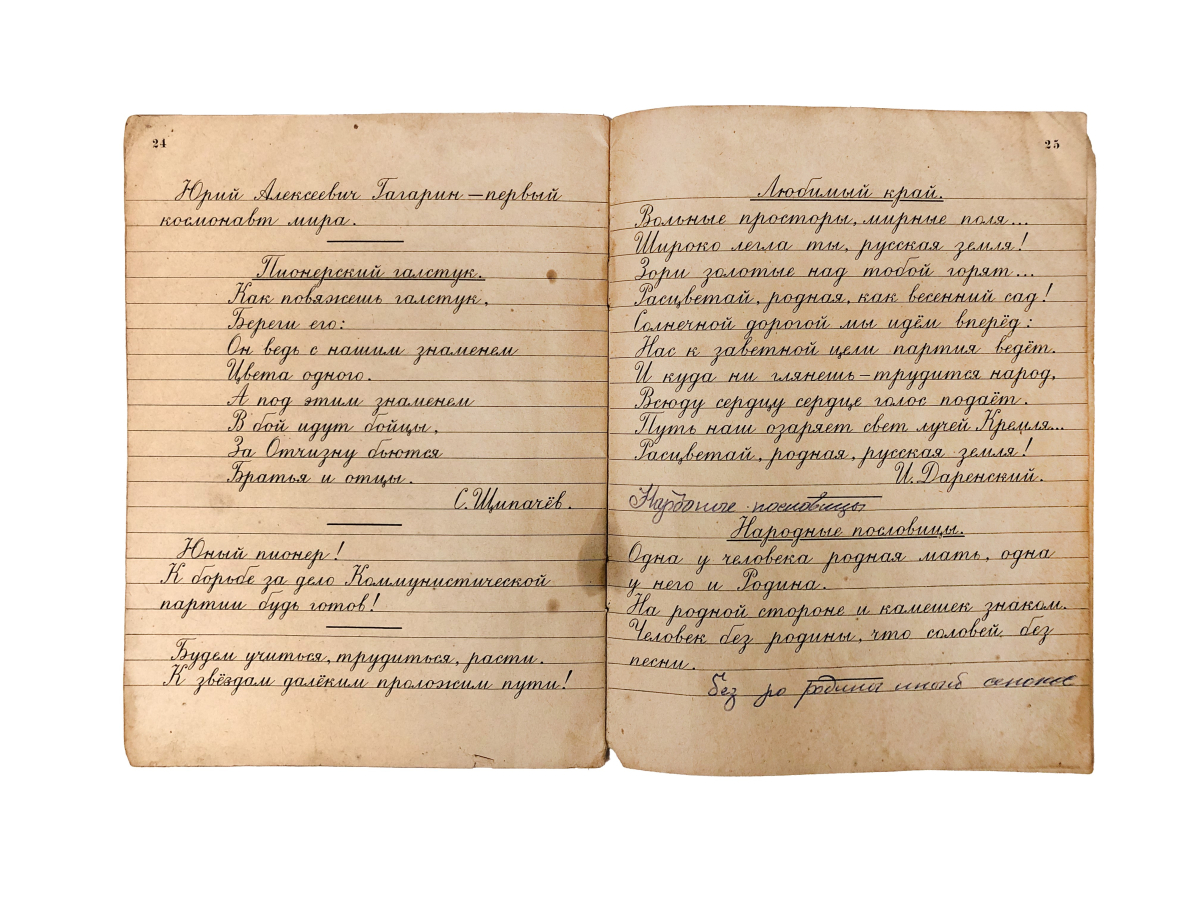 24
Юрий Алексеевич Гагарин — первый
космонавт мира.
Пионерский галстук.
Как повяжешь галстук,
Береги его:
Он ведь с нашим знаменем
Цвета одного.
А под этим знаменем
В бой идут бойцы,
За Отчизну бьются
Братья и отцы.
С. Щипачёв.
Юный пионер!
К борьбе за дело Коммунистической
партии будь готов!
Будем учиться, трудиться, расти.
К звёздам далёким проложим пути!
25
Любимый край.
Вольные просторы, мирные поля...
Широко легла ты, русская земля!
Зори золотые над тобой горят...
Расцветай, родная, как весенний сад!
Солнечной дорогой мы идём вперёд:
Нас к заветной цели партия ведёт.
И куда ни глянешь — трудится народ,
Всюду сердцу сердце голос подаёт.
Путь наш озаряет свет лучей Кремля...
Расцветай, родная, русская земля!
И. Даренский.
пословицы
Народные пословицы.
Одна у человека родная мать, одна
у него и Родина.
На родной стороне и камешек знаком.
Человек без родины, что соловей без
песни.
Без ро родины